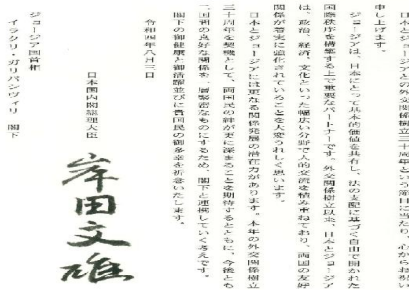 ジョージアとの外交関係樹立三十周年という節目に当たり、心からお祝い
申し上げます。
ジョージアは、日本にとって基本的価値を共有し、法の支配に基づく自由で開かれた
国際秩序を構築する上で重要なパートナーです。外交関係樹立以来、日本とジョージア
は、政治、経済、文化といった幅広い分野で人的交流を積み重ねており、両国の友好
関係が着実に進化されていることを大変うれしく思います。
日本とジョージアには更なる関係発展の潜在力があります。本年の外交関係樹立
三十周年を契機として、両国民の絆が更に深まることを期待するとともに、今後とも
二国間の良好な関係を、層緊密なものにするため、閣下と連携していく考えです。
閣下の御健康と御活躍並びに貴国民の御多幸を祈念いたします。
令和四年八月三日
日本国内閣総理大臣
岸田文雄
ジョージア国首相
イラクリ・ガリバシヴィリ 閣下